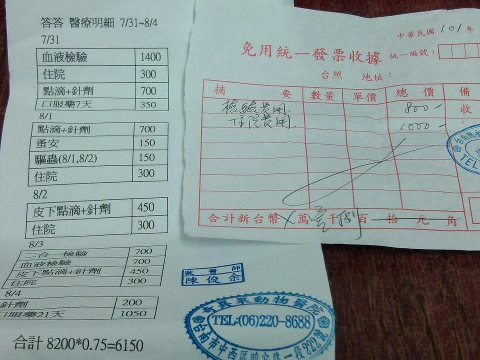 答答 醫療明細 7/31~8/4
7/31
血液檢驗 1400
住院 300
點滴+針劑 700
口服藥7天 350
8/1
點滴+針劑 700
蚤安 150
驅蟲(8/1,8/2) 150
住院 300
8/2
皮下點滴+針劑 450
住院 300
8/3
二合一檢驗 700
血液檢驗 700
皮下點滴+針劑 450
住院 300
8/4
針劑 200
口服藥21天 1050
合計 8200*0.75=6150
獸醫師
陳俊余
動物醫院
TEL:(06)220-8688
台南市中西區
中華民國101年
免用統一發票收據
統一編號:
台照 地址:
摘要 數量 單價 總價 備
檢驗費用 800-
住院費用 1000-
收
TEL
合計新台幣 萬 壹千 捌百 拾 元 角